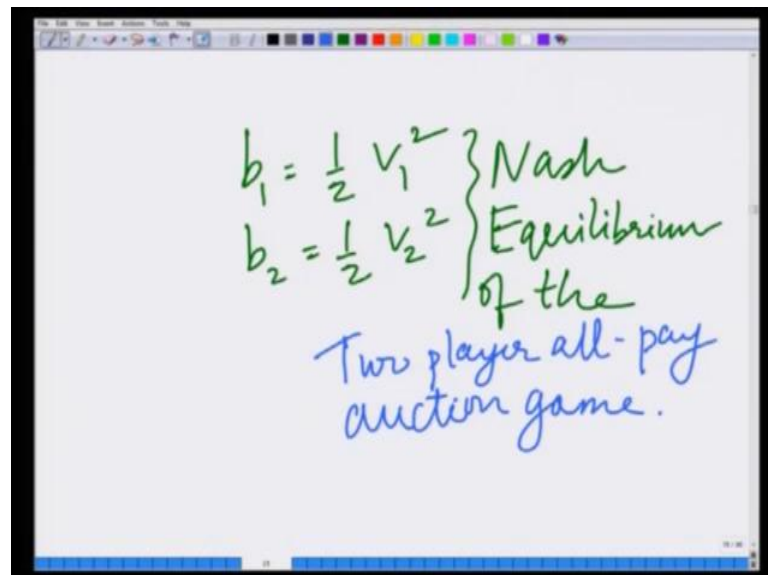 File Edit View Insert Actions Tools Help
b₁ = 1/2 v₁² } Nash
b₂ = 1/2 v₂² } Equilibrium
of the
Two player all-pay
auction game.